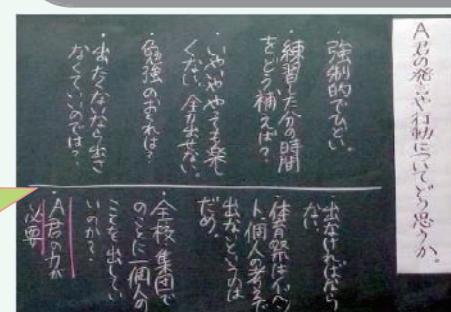 A君の発言や行動についてどう思うか。
・強制的でひどい。
・練習した分の時間
をどう補えば?
・いやいややっても楽し
くない。全力出せない。
・勉強のおくれは?
・出たくないなら出さ
なくていいのでは?
・出なければならない
だ。
・体育祭はイベン
ト、個人の考えで
出ないというのは
だめ。
・全校集団で
のことに一個人の
ことを出してい
いのか?
・A君の力が
必要